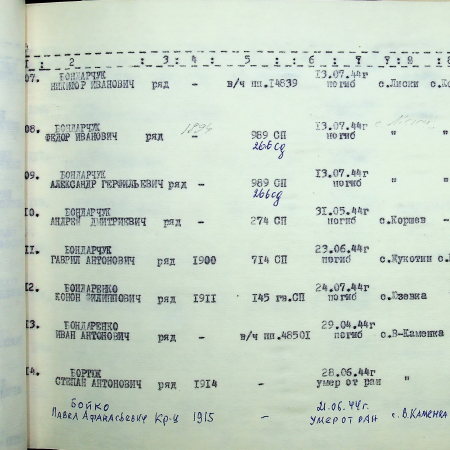 1 : 2 : 3 : 4 : 5 : 6 : 7 : 8
07. БОНДАРЧУК 13.07.44г
НИКИФОР ИВАНОВИЧ ряд - в/ч пп.14839 погиб с.Лиски
08. БОНДАРЧУК 13.07.44г
ФЕДОР ИВАНОВИЧ ряд 989 СП погиб " "
266сд
09. БОНДАРЧУК 13.07.44г
АЛЕКСАНДР ГЕРФИЛЬЕВИЧ ряд - 989 СП погиб " "
266сд
10. БОНДАРЧУК 31.05.44г
АНДРЕЙ ДМИТРИЕВИЧ ряд - 274 СП погиб с.Коршев -
11. БОНДАРЧУК 23.06.44г
ГАВРИЛ АНТОНОВИЧ ряд 1900 714 СП погиб с.Жукотин
12. БОНДАРЕНКО 24.07.44г
КОНОН ФИЛИППОВИЧ ряд 1911 145 гв.СП погиб с.Юзевка
13. БОНДАРЕНКО 29.04.44г
ИВАН АНТОНОВИЧ ряд - в/ч пп.48501 погиб с.В-Каменка
14. БОРТЮК 28.06.44г
СТЕПАН АНТОНОВИЧ ряд 1914 - умер от ран "
Бойко 21.06.44г.
Павел Афанасьевич Кр-ц 1915 - УМЕР ОТ РАН с.В.КАМЕНКА